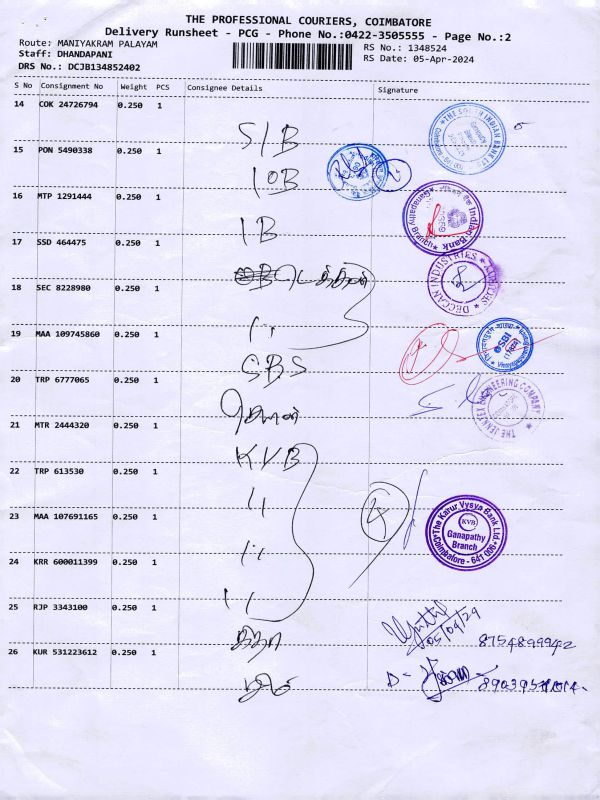 THE PROFESSIONAL COURIERS, COIMBATORE
Delivery Runsheet - PCG - Phone No.:0422-3505555 - Page No.:2
Route: MANIYAKRAM PALAYAM
RS No.: 1348524
Staff: DHANDAPANI
RS Date: 05-Apr-2024
DRS No.: DCJB134852402
S No Consignment No Weight PCS Consignee Details Signature
14 COK 24726794 0.250 1
SIB
15 PON 5490338 0.250 1
IOB
16 MTP 1291444 0.250 1
IB
17 SSD 464475 0.250 1
18 SEC 8228980 0.250 1
19 MAA 109745860 0.250 1
SBS
20 TRP 6777065 0.250 1
21 MTR 2444320 0.250 1
KVB
22 TRP 613530 0.250 1
23 MAA 107691165 0.250 1
24 KRR 600011399 0.250 1
25 RJP 3343100 0.250 1
26 KUR 531223612 0.250 1
THE SOUTH INDIAN BANK LTD
Indian Bank
Ganapathy Branch
DECCAN INDUSTRIES
SBI
THE JENNTEX ENGINEERING COMPANY
The Karur Vysya Bank Ltd
KVB
Ganapathy
Branch
Coimbatore - 641 006
8754899942